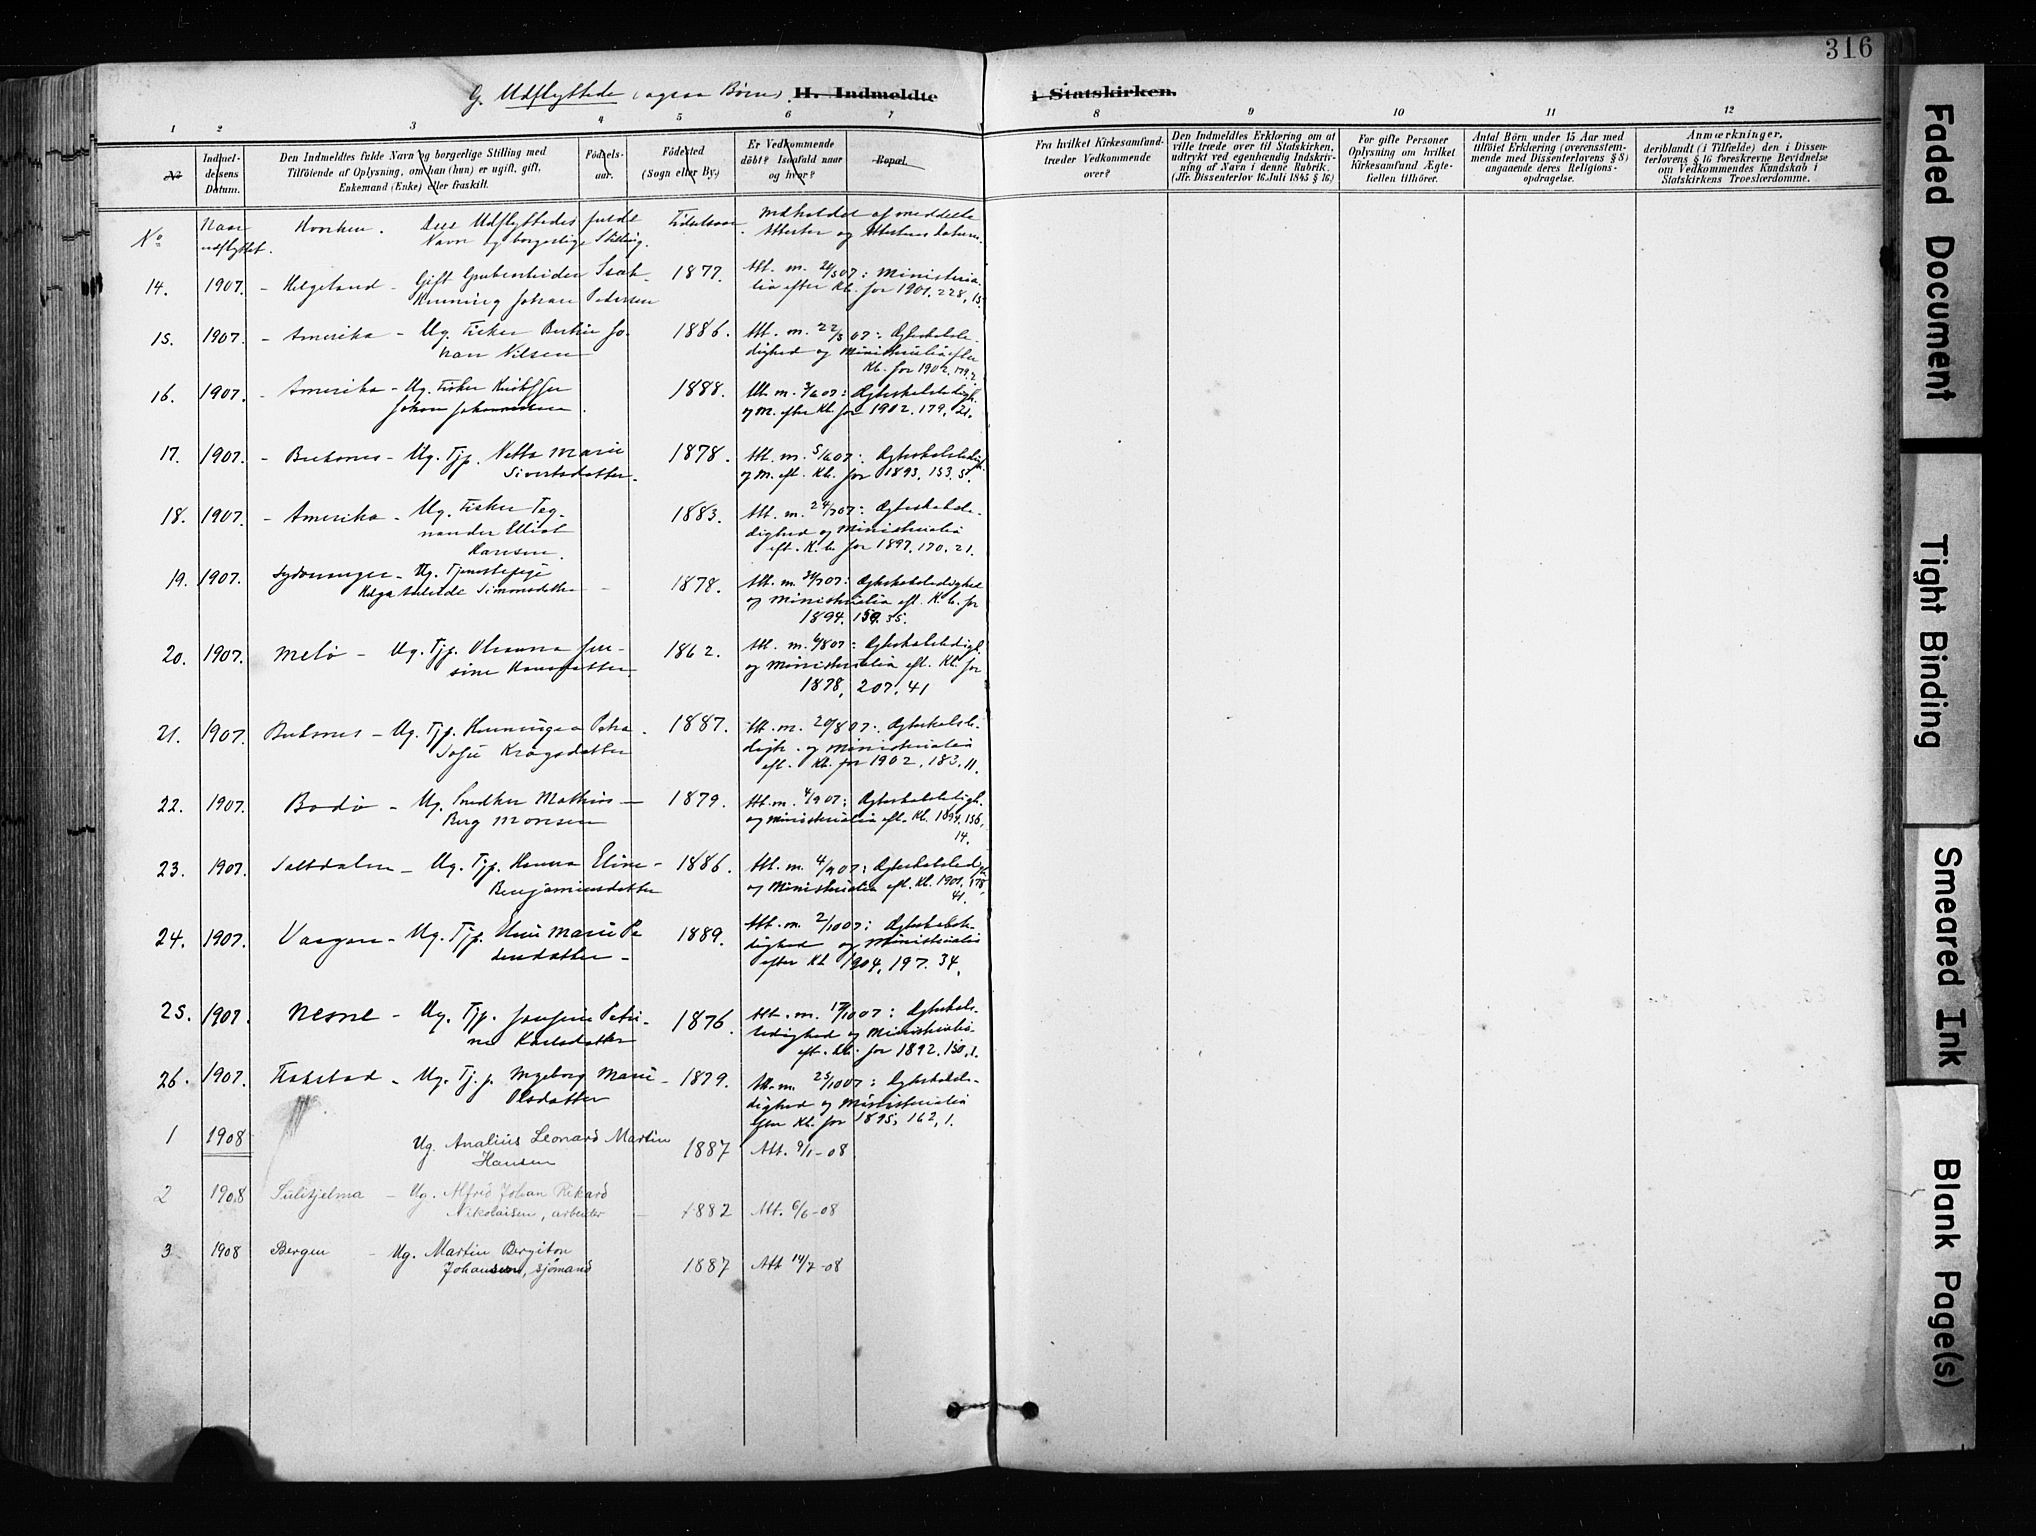 316
G. Udflyttede (ogsaa Børn). H. Indmeldte i Statskirken.
1 2 3 4 5 6 7 8 9 10 11 12
No
Indmel-
delsens
Datum.
Den Indmeldtes fulde Navn og borgerlige Stilling med
Tilføiende af Oplysning, om han (hun) er ugift, gift,
Enkemand (Enke) eller fraskilt.
Fødsels-
aar.
Fødested
(Sogn eller By.)
Er Vedkommende
døbt? Isaafald naar
og hvor?
Bopæl.
Fra hvilket Kirkesamfund
træder Vedkommende
over?
Den Indmeldtes Erklæring om at
ville træde over til Statskirken,
udtrykt ved egenhændig Indskriv-
ning af Navn i denne Rubrik.
(Jfr. Dissenterlov 16 Juli 1845 § 16)
For gifte Personer
Oplysning om hvilket
Kirkesamfund Ægte-
fællen tilhører.
Antal Børn under 15 Aar med
tilføiet Erklæring (overensstem-
mende med Dissenterlovens § 8)
angaaende deres Religions-
opdragelse.
Anmærkninger,
deriblandt (i Tilfælde) den i Dissen-
terlovens § 16 foreskrevne Bevidnelse
om Vedkommendes Kundskab i
Statskirkens Troeslærdomme.
No Naar Hvorhen. Den Udflyttedes fulde Fødselsaar. Indholdet af meddelte
udflyttet. Navn og borgerlige Stilling. Attester og Attestens datum.
14. 1907. - Helgeland - Gift Grubearbeider Isak 1877. Att. m. : Ministeria-
Henning Johan Petersen lia efter Kb. for 1901, 228, 15
15. 1907. - Amerika - Ug. Fisker Jo- 1886. Att. m. 22/5 07: Ægteskabsle-
han Nilsen dighed og Ministerialia efter
Kb. for 1902. 179.2.
16. 1907. - Amerika - Ug. Fisker Kristoffer 1888. Att. m. 3/6 07: Ægteskabsledigh.
Johan Johannessen. og M. efter Kb. for 1902, 179, 21.
17. 1907. - Ug. Tjp. Netta Marie 1878. Att. m. 5/6 07: Ægteskabsledigh.
Sivertsdatter. og M. eft. Kb. for 1893, 153, 5.
18. 1907. - Amerika - Ug. Fisker Teg- 1883. Att. m. 24/7 07: Ægteskabsle-
nander Elliot dighed og Ministerialia
Hansen. eft. K.b. for 1897, 170, 21.
19. 1907. Sydvaranger - Ug. Tjenestepige 1878. Att. m. : Ægteskabsledighed
Simonsdatter og Ministerialia eft. K.b. for
1894. 159. 35.
20. 1907. Melø - Ug. Tjp. Oleanna Jen- 1862. Att. m. 6/8 07: Ægteskabsledigh.
sine Hansdatter. og Ministerialia eft. Kb. for
1878, 207, 41
21. 1907. - Ug. Tjp. Petra 1887. Att. m. 20/8 07: Ægteskabsle-
Sofie Kragsdatter digh. og Ministerialia
eft. Kb. for 1902, 183, 11.
22. 1907. Bodø - Ug. Snedker Mathias 1879. Att. m. 4/9 07: Ægteskabsledigh.
Berg Monsen og Ministerialia eft. Kb. 1894, 156,
14.
23. 1907. Saltdalen - Ug. Tjp. Hanna Eline 1886. Att. m. 4/9 07: Ægteskabsledigh.
Benjaminsdatter og Ministerialia eft. Kb. 1901, 178,
41.
24. 1907. Vaagan - Ug. Tjp. Marie Pe- 1889. Att. m. 2/10 07: Ægteskabsle-
dersdatter - dighed og Ministerialia
efter Kb. 1904, 197. 34.
25. 1907. Nesne - Ug. Tjp. Josefine Petri- 1876. Att. m. 17/10 07: Ægteskabs-
ne Karlsdatter ledighed og Ministerialia
eft. Kb. for 1892, 150, 1.
26. 1907. Flakstad - Ug. Tj.p. Ingeborg Marie - 1879. Att. m. 25/10 07: Ægteskabsle-
Olsdatter dighed og Ministerialia
efter Kb. for 1895, 162, 1.
1 1908 Ug. Analius Leonard Martin 1887 Att. 9/1-08
Hansen
2 1908 Sulitjelma - Ug. Alfred Johan Rikard
Nikolaisen, arbeider - 1882 Att. 6/6-08
3 1908 Bergen - Ug. Martin Bergiton
Johansen, sjømand 1887 Att. 14/7-08
Faded Document
Tight Binding
Smeared Ink
Blank Page(s)